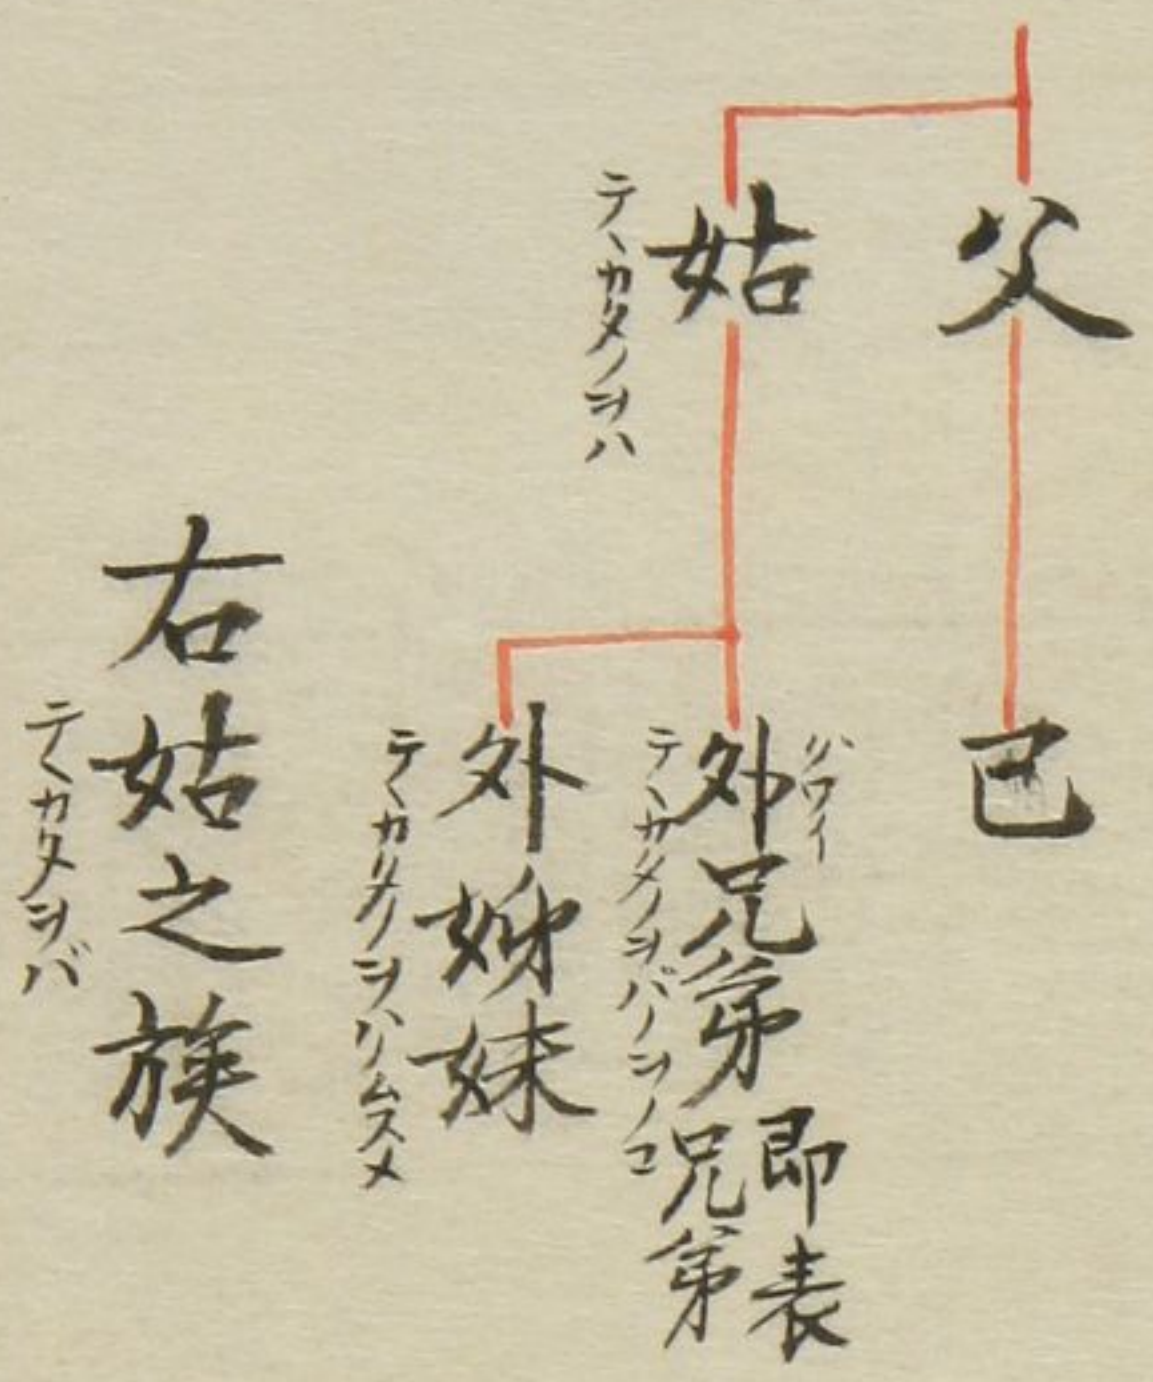 父
己
姑
テヽカタノヲハ
グワイ
外兄弟
即表
兄弟
テヽカタノヲバノヲノコ
外姊妹
テヽカタノヲハノムスメ
右姑之族
テヽカタヲバ